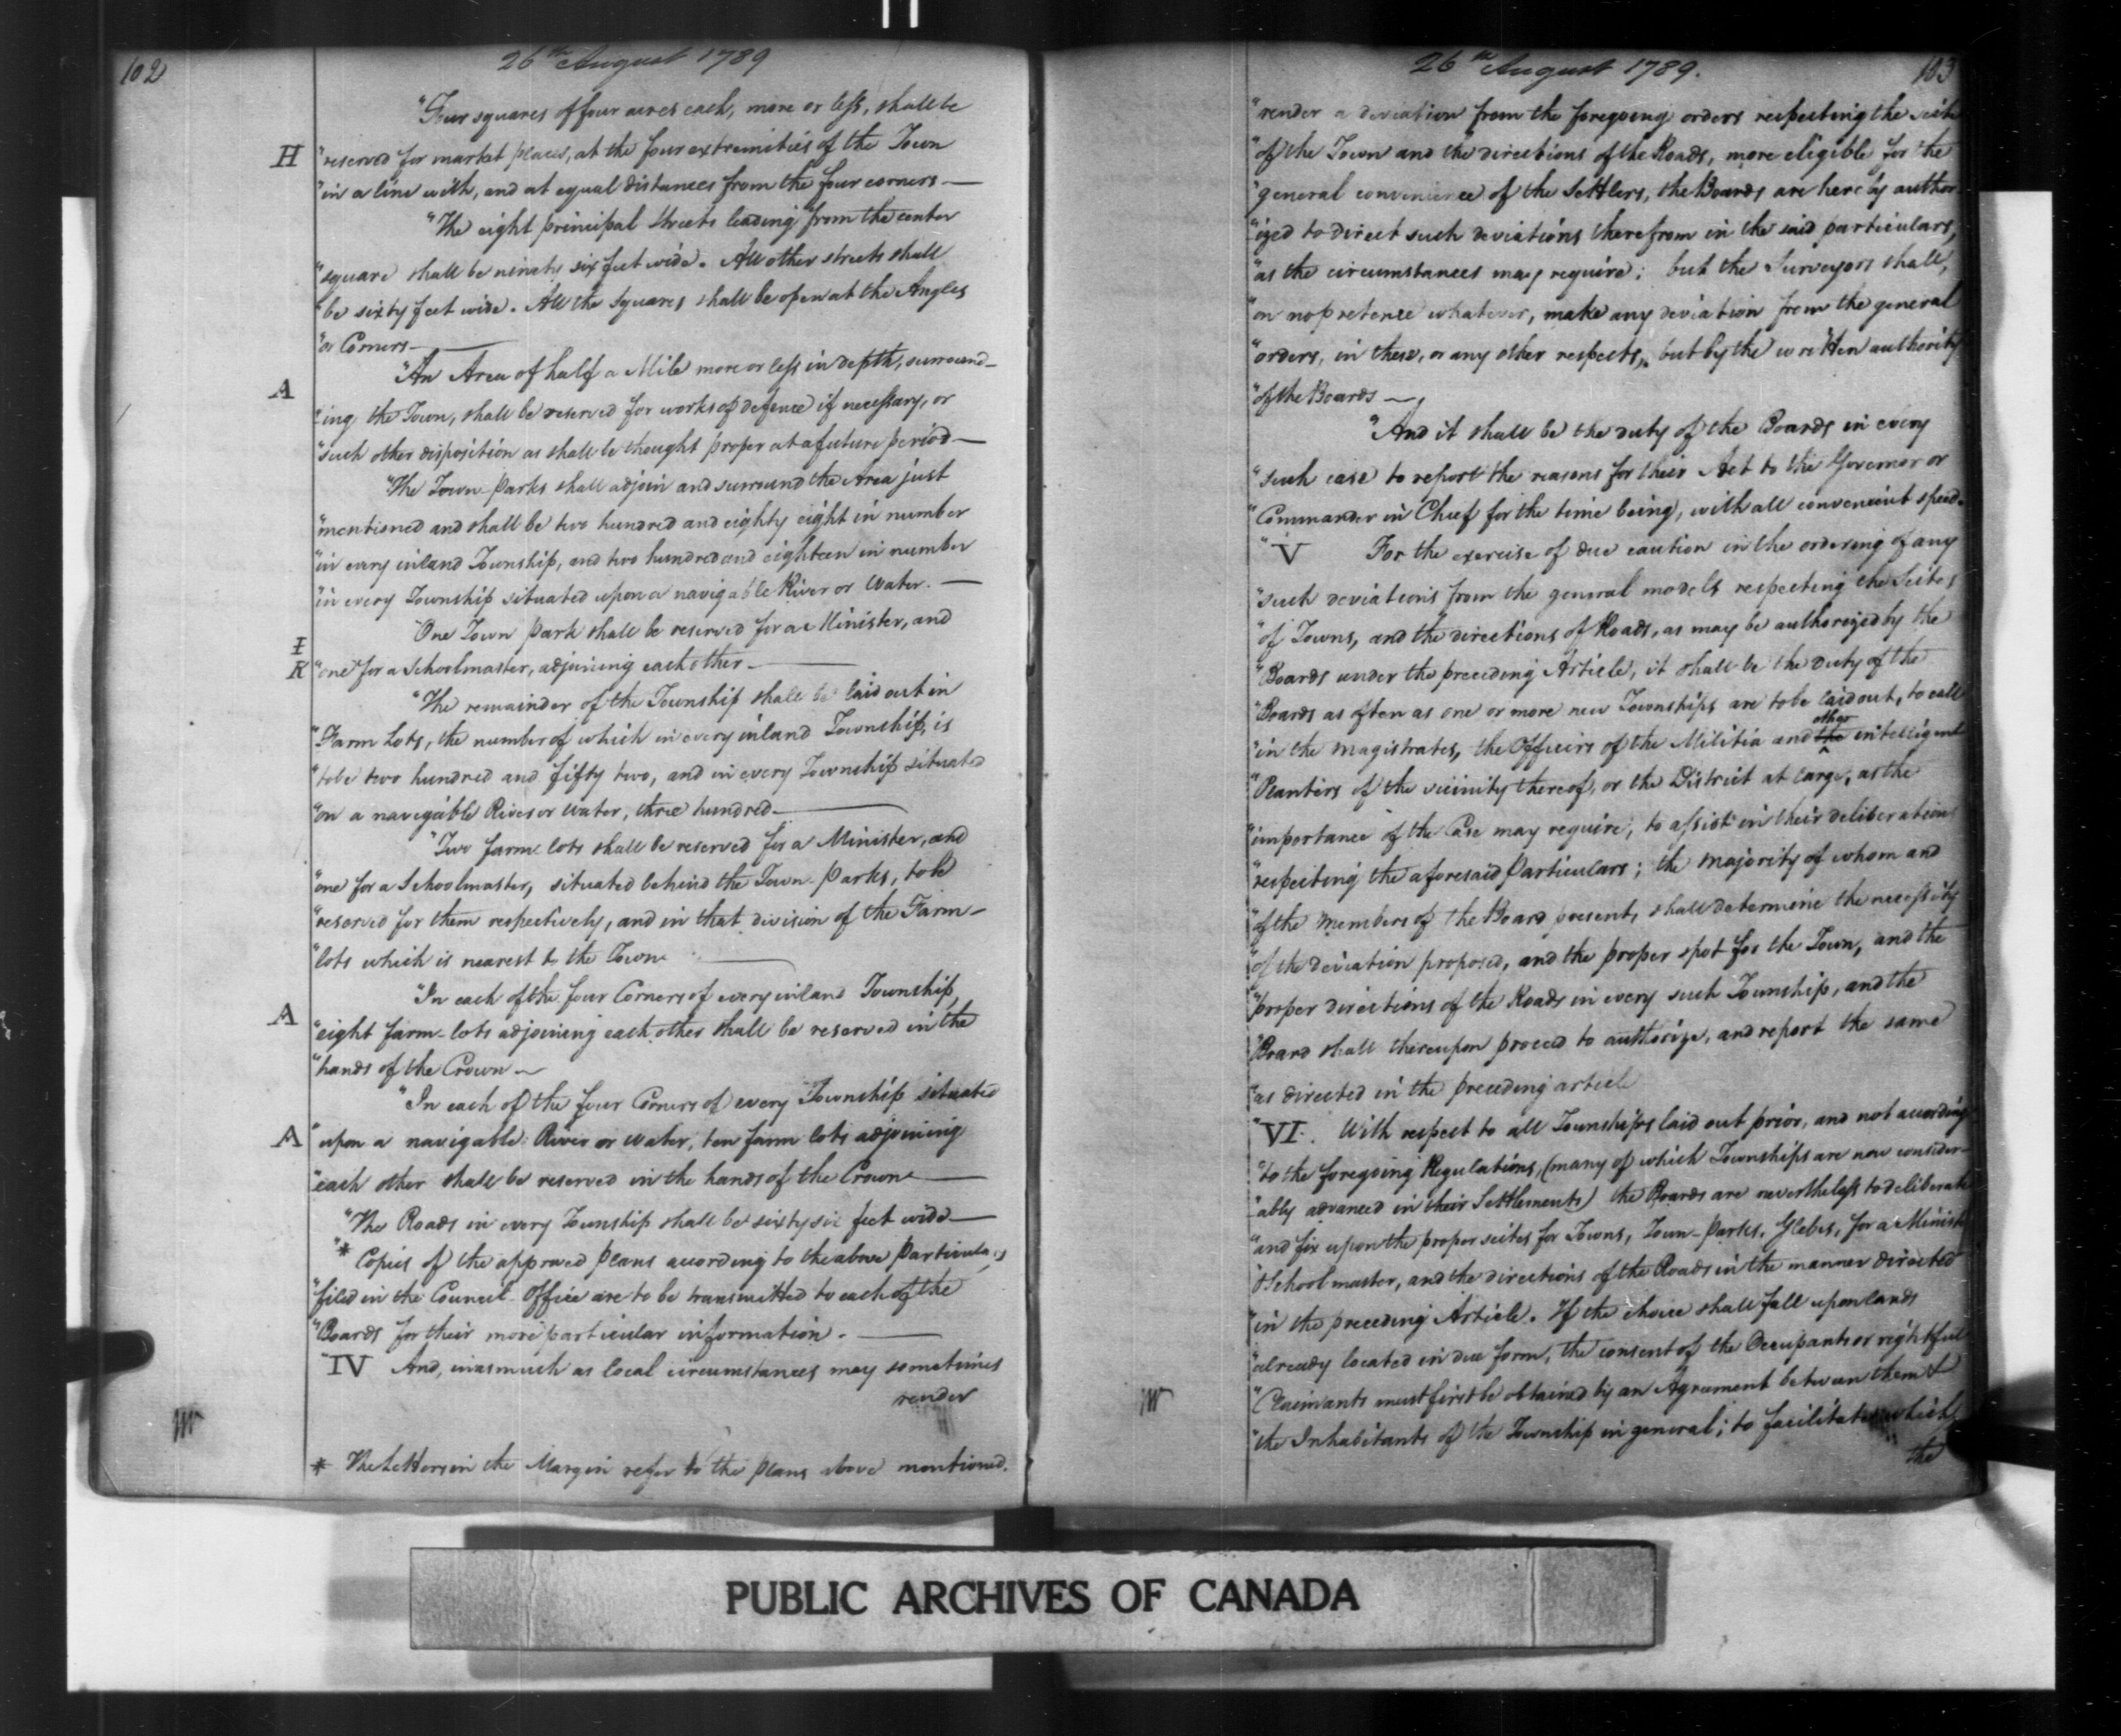 102
26th August 1789
"Four squares of four acres each, more or less, shall be
H
"reserved for market places, at the four extremities of the Town
"in a line with, and at equal distances from the four corners—
"The eight principal Streets leading from the center
"square shall be ninety six feet wide. All other streets shall
"be sixty feet wide. All the Squares shall be open at the Angles
"or Corners—
A
"An Area of half a Mile more or less in depth, surround-
"ing the Town, shall be reserved for works of defence if necessary, or
"such other disposition as shall be thought proper at a future period—
"The Town-Parks shall adjoin and surround the Area just
"mentioned and shall be two hundred and eighty eight in number
"in every inland Township, and two hundred and eighteen in number
"in every Township situated upon a navigable River or Water.—
"One Town Park shall be reserved for a Minister, and
I
K
"one for a Schoolmaster, adjoining each other—
"The remainder of the Township shall be laid out in
"Farm Lots, the number of which in every inland Township, is
"to be two hundred and fifty two, and in every Township situated
"on a navigable River or Water, three hundred—
"Two farm lots shall be reserved for a Minister, and
"one for a Schoolmaster, situated behind the Town-Parks, to be
"reserved for them respectively, and in that division of the Farm-
"lots which is nearest to the Town—
"In each of the four Corners of every inland Township,
A
"eight farm-lots adjoining each other shall be reserved in the
"hands of the Crown—
"In each of the four Corners of every Township situated
A
"upon a navigable River or Water, ten farm lots adjoining
"each other shall be reserved in the hands of the Crown—
"The Roads in every Township shall be sixty six feet wide—
"* Copies of the approved Plans according to the above Particulars
"filed in the Council-Office are to be transmitted to each of the
"Boards for their more particular information.—
"IV And, inasmuch as local circumstances may sometimes
render
* The Letters in the Margin refer to the Plans above mentioned.
26th August 1789.
103
"render a deviation from the foregoing orders respecting the scite
"of the Town and the directions of the Roads, more eligible for the
"general convenience of the Settlers, the Boards are hereby author
"ized to direct such deviations therefrom in the said particulars,
"as the circumstances may require; but the Surveyors shall,
"on no pretence whatever, make any deviation from the general
"orders, in these, or any other respects, but by the written authority
"of the Boards—
"And it shall be the duty of the Boards in every
"such case to report the reasons for their Act to the Governor or
"Commander in Chief for the time being, with all convenient speed.
"V For the exercise of due caution in the ordering of any
"such deviations from the general models respecting the Scites
"of Towns, and the directions of Roads, as may be authorized by the
"Boards under the preceding Article, it shall be the duty of the
"Boards as often as one or more new Townships are to be laid out, to call
"in the Magistrates, the Officers of the Militia and the other intelligent
"Planters of the vicinity thereof, or the District at large, as the
"importance of the Case may require, to assist in their deliberation
"respecting the aforesaid Particulars; the majority of whom and
"of the Members of the Board present, shall determine the necessity
"of the deviation proposed, and the proper spot for the Town, and the
"proper directions of the Roads in every such Township, and the
"Board shall thereupon proceed to authorize, and report the same
"as directed in the preceding article
"VI. With respect to all Townships laid out prior, and not according
"to the foregoing Regulations, (many of which Townships are now consider-
"ably advanced in their Settlements) the Boards are nevertheless to deliberate
"and fix upon the proper scites for Towns, Town-Parks, Glebes, for a Minister
"Schoolmaster, and the directions of the Roads in the manner directed
"in the preceding Article. If the choice shall fall upon lands
"already located in due form, the consent of the Occupants or rightful
"Claimants must first be obtained by an Agreement between them &
"the Inhabitants of the Township in general; to facilitate which
the
PUBLIC ARCHIVES OF CANADA